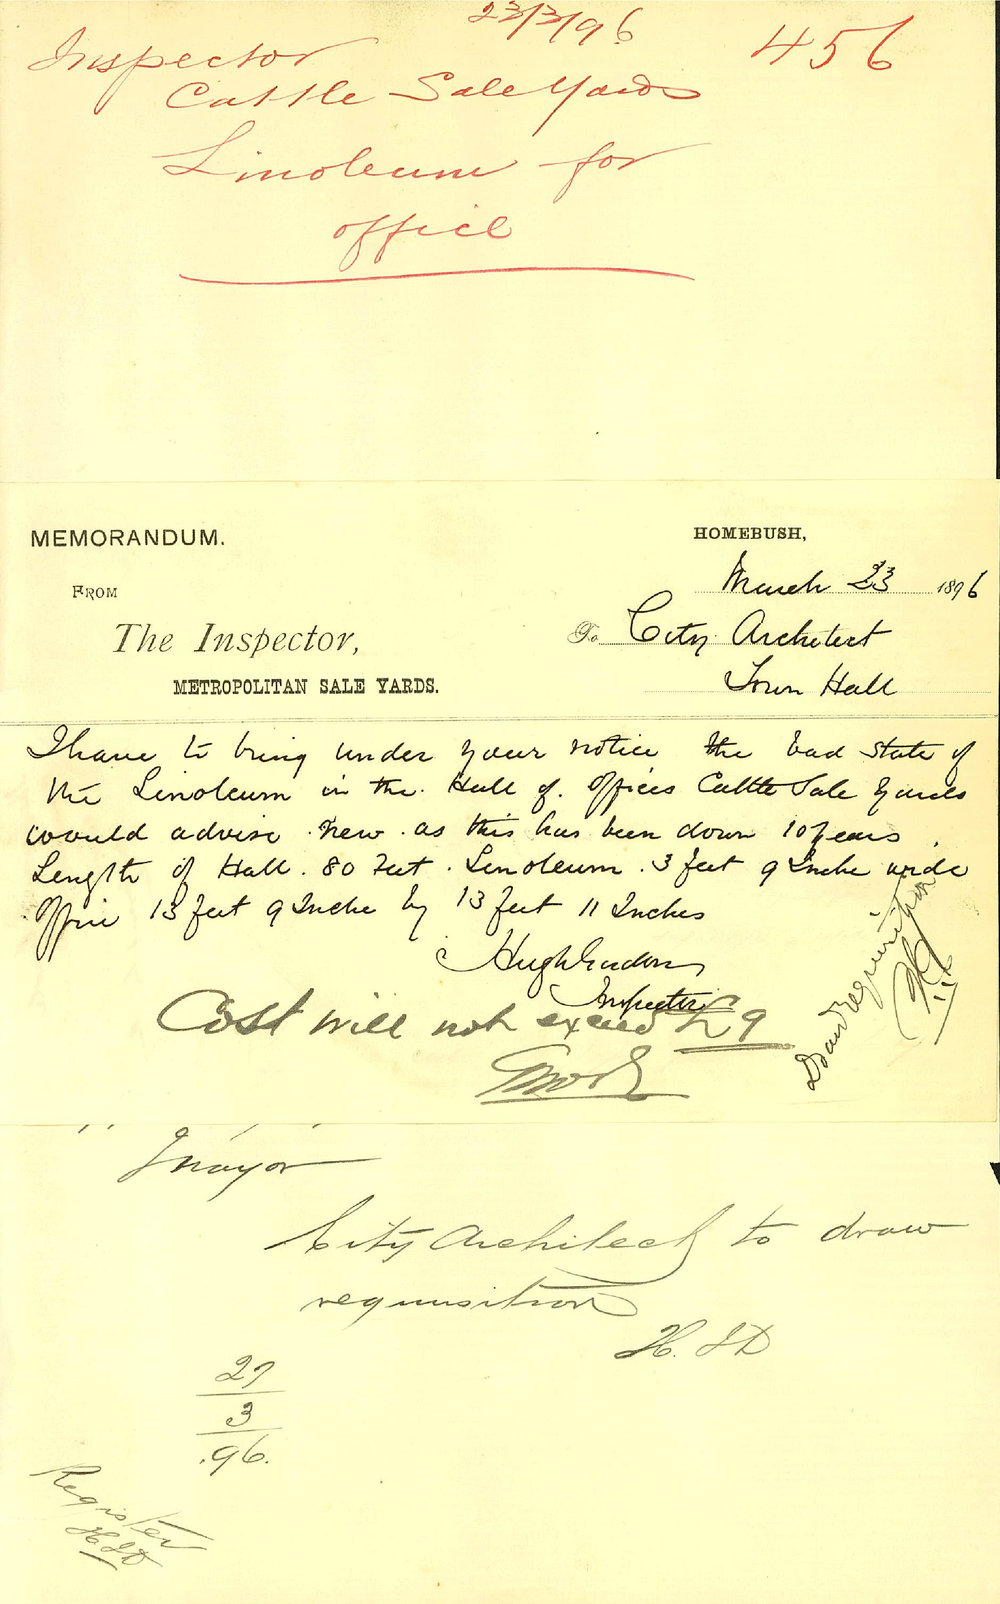 23/3/96
456
Inspector
Cattle Sale Yards
Linoleum for
office
MEMORANDUM.
HOMEBUSH,
March 23 1896
FROM
The Inspector,
METROPOLITAN SALE YARDS.
To City Architect
Town Hall
I have to bring under your notice the bad state of
the Linoleum in the Hall of Offices Cattle Sale Yards
would advise new as this has been down 10 years
Length of Hall. 80 Feet. Linoleum. 3 feet 9 Inche wide
Office 13 feet 9 Inche by 13 feet 11 Inches
Hugh
Inspector
Cost will not exceed £9
Draw requisition
Mayor
City Architect to draw
requisition
H. J D
27
3
.96.
Register
H J D